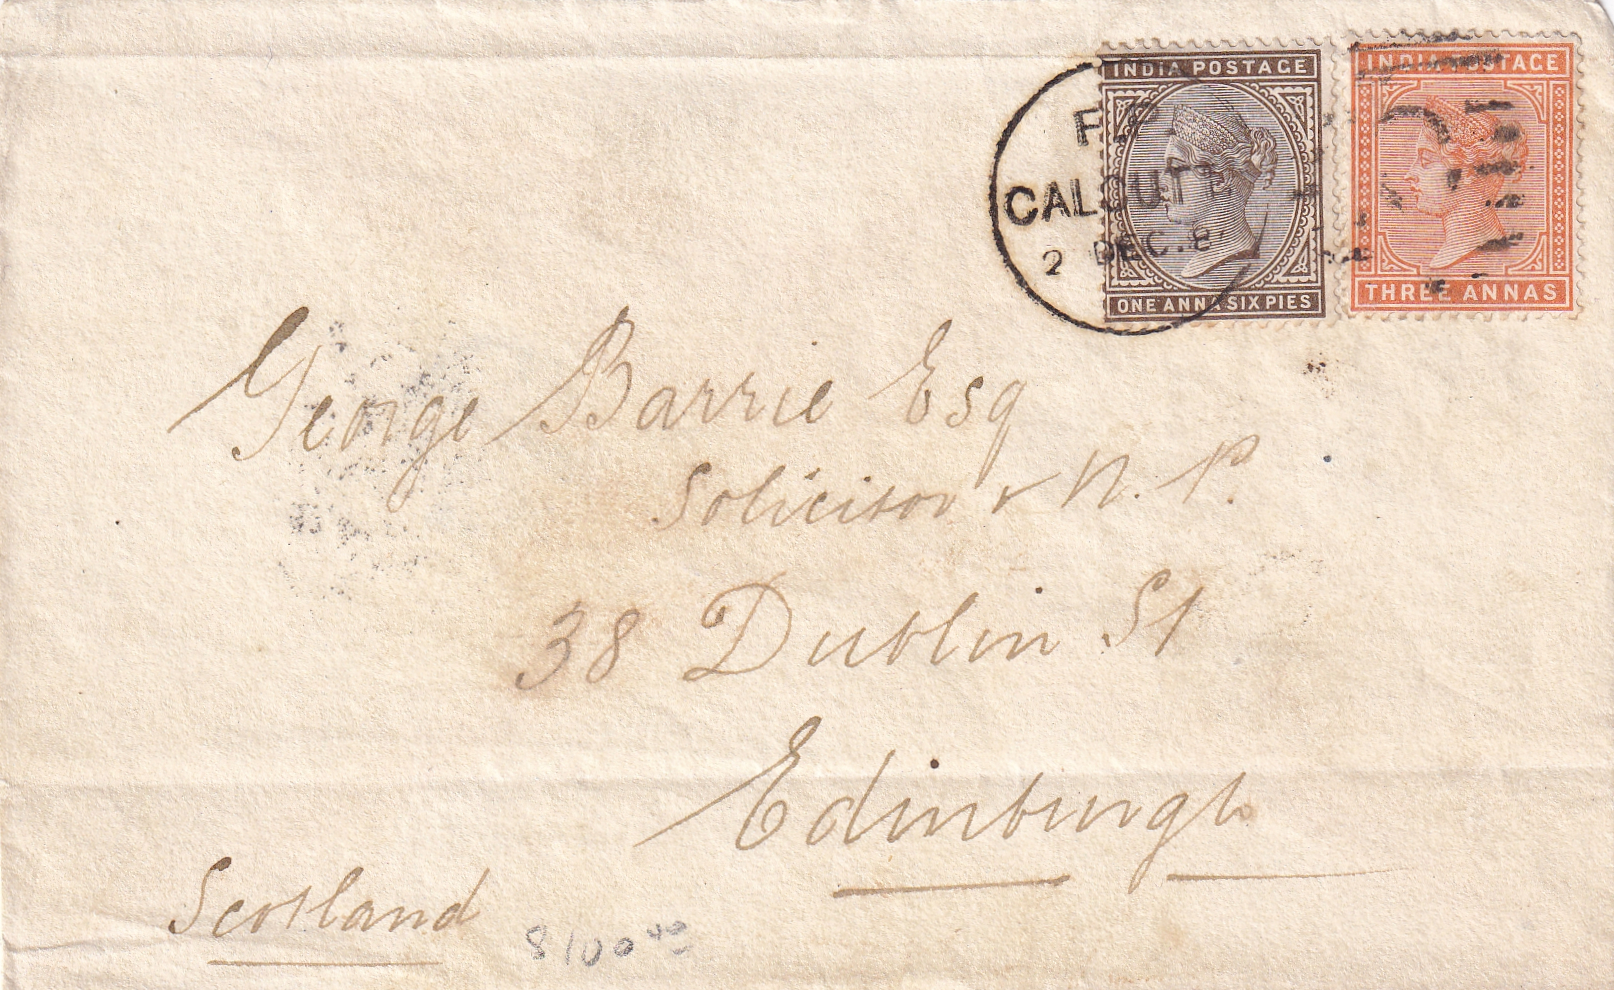 INDIA POSTAGE
ONE ANNA SIX PIES
INDIA POSTAGE
THREE ANNAS
CALCUTT
2 DEC. 8
George Barrie Esq
Solicitor & N. P.
38 Dublin St
Edinburgh
Scotland